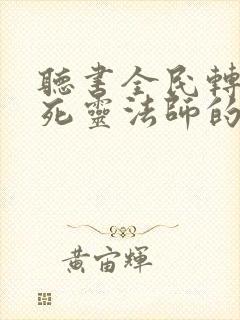 聽書全民轉
死靈法師的
黃宙輝